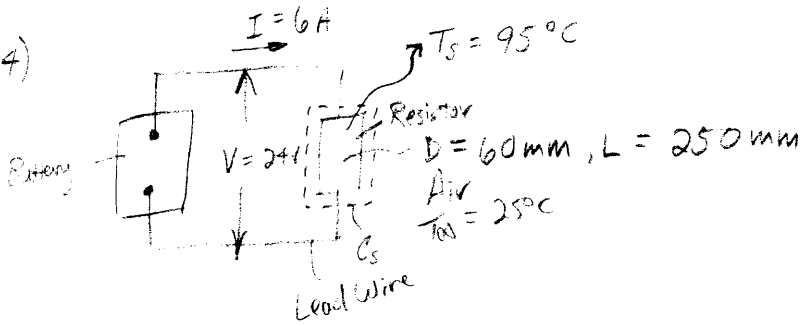 4)
I = 6A
Ts = 95°C
Battery
V = 24V
Resistor
D = 60mm, L = 250mm
Air
T∞ = 25°C
Cs
Lead Wire